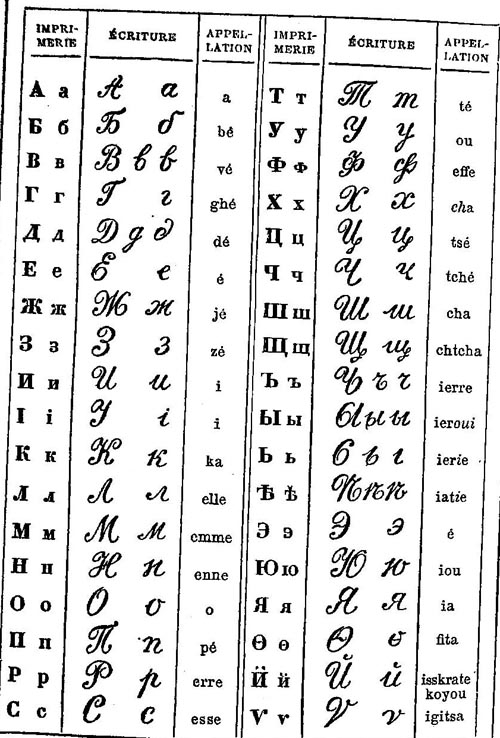 IMPRI-MERIE ÉCRITURE APPEL-LATION IMPRI-MERIE ÉCRITURE APPEL-LATION
А а А а a Т т Т т té
Б б Б б bé У у У у ou
В в В в в vé Ф ф Ф ф effe
Г г Г г ghé Х х Х х cha
Д д Д д д dé Ц ц Ц ц tsé
Е е Е е é Ч ч Ч ч tché
Ж ж Ж ж jé Ш ш Ш ш cha
З з З з zé Щ щ Щ щ chtcha
И и И и i Ъ ъ Ъ ъ ъ ierre
І і І і i Ы ы Ы ы ы ieroui
К к К к ka Ь ь Ь ь ь ierie
Л л Л л elle Ѣ ѣ Ѣ ѣ ѣ iatie
М м М м emme Э э Э э é
Н н Н н enne Ю ю Ю ю iou
О о О о o Я я Я я ia
П п П п pé Ѳ ѳ Ѳ ѳ fita
Р р Р р erre Й й Й й isskrate koyou
С с С с esse Ѵ ѵ Ѵ ѵ igitsa